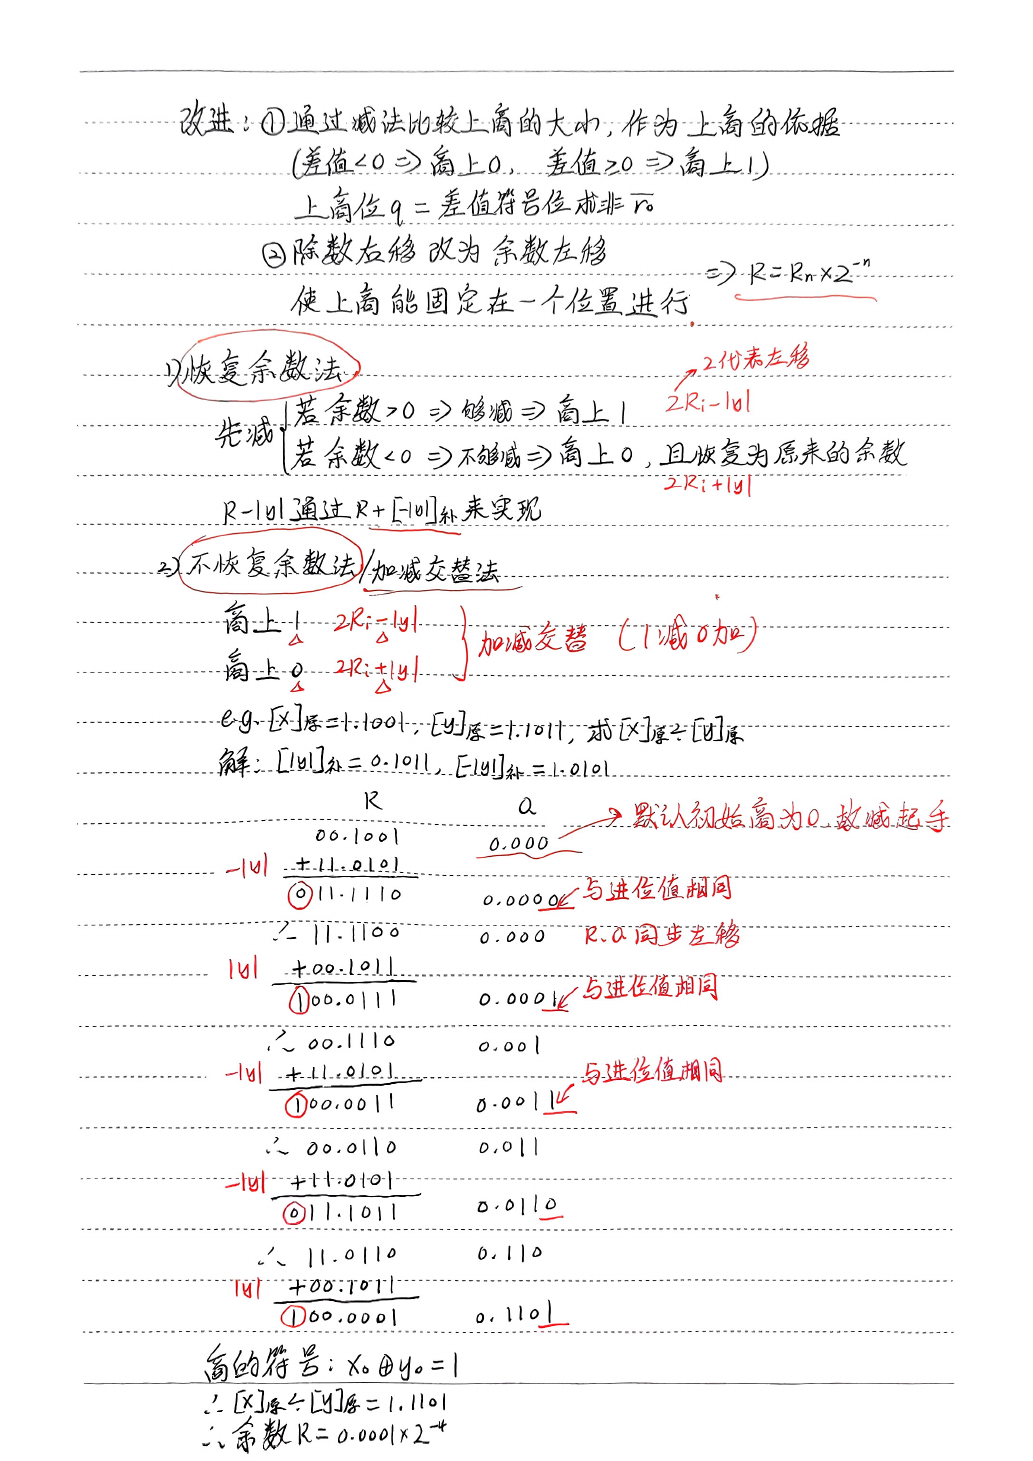 改进：①通过减法比较上商的大小，作为上商的依据
(差值<0 => 商上0， 差值≥0 => 商上1)
上商位q = 差值符号位求非 r̅₀
②除数右移改为余数左移
=> R=Rn×2⁻ⁿ
使上商能固定在一个位置进行
1)恢复余数法
2代表左移
先减
若余数>0 => 够减 => 商上1
2Ri-|y|
若余数<0 => 不够减 => 商上0，且恢复为原来的余数
2Ri+|y|
R-|y|通过R+[-|y|]补来实现
2)不恢复余数法/加减交替法
商上1 2Ri-|y|
加减交替（1减0加）
商上0 2Ri+|y|
e.g. [x]原=1.1001, [y]原=1.1011, 求[x]原÷[y]原
解：[|y|]补=0.1011, [-|y|]补=1.0101
R Q
00.1001 0.000 → 默认初始商为0，故减起手
-|y| +11.0101
0 11.1110 0.0000 与进位值相同
∴ 11.1100 0.000 R.Q同步左移
|y| +00.1011
1 00.0111 0.0001 与进位值相同
∴ 00.1110 0.001
-|y| +11.0101 与进位值相同
1 00.0011 0.0011
∴ 00.0110 0.011
-|y| +11.0101
0 11.1011 0.0110
∴ 11.0110 0.110
|y| +00.1011
1 00.0001 0.1101
商的符号：x₀⊕y₀=1
∴[x]原÷[y]原=1.1101
∴余数R=0.0001×2⁻⁴